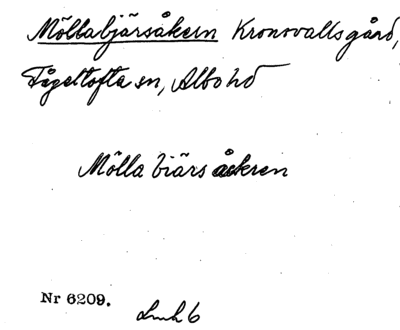 Möllabjärsåkern Kronovalls gård,
Fågeltofta sn, Albo hd
Mölla biärs åckren
Nr 6209.
Lmh 6